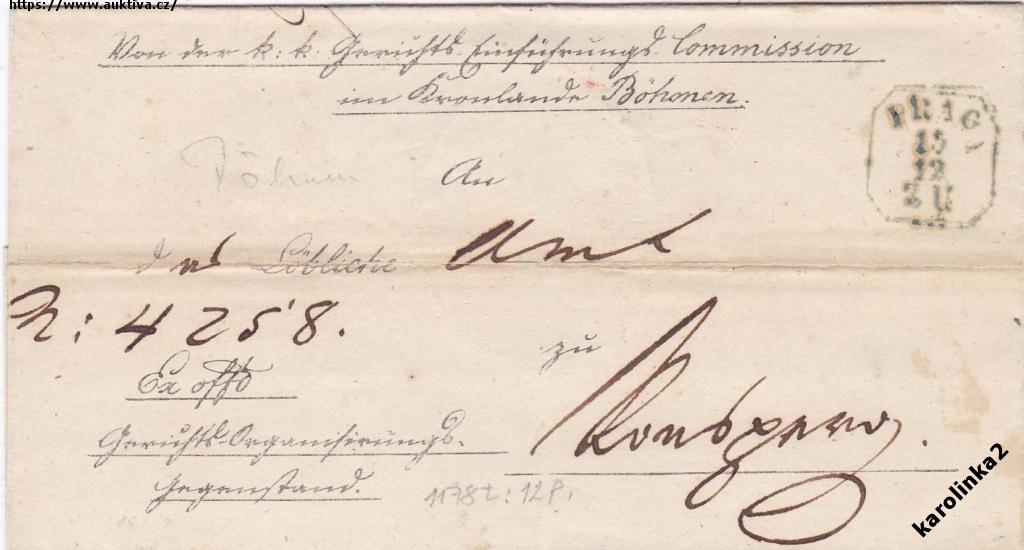 https://www.auktiva.cz/
Von der k. k. Gerichts Einführungs Commission
im Kronlande Böhmen.
PRAG
15
12
2 U
Böhmen
An
das Löbliche Amt
N: 4258.
zu
Ex offo
Ronsperg.
Gerichts-Organisirungs-
Gegenstand.
1178t: 12P.
karolinka2